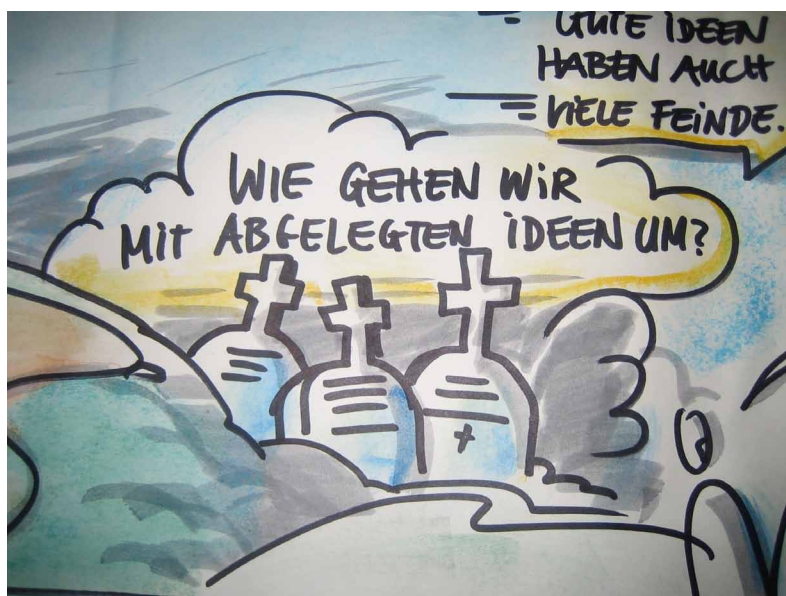 GUTE IDEEN
HABEN AUCH
VIELE FEINDE.
WIE GEHEN WIR
MIT ABGELEGTEN IDEEN UM?